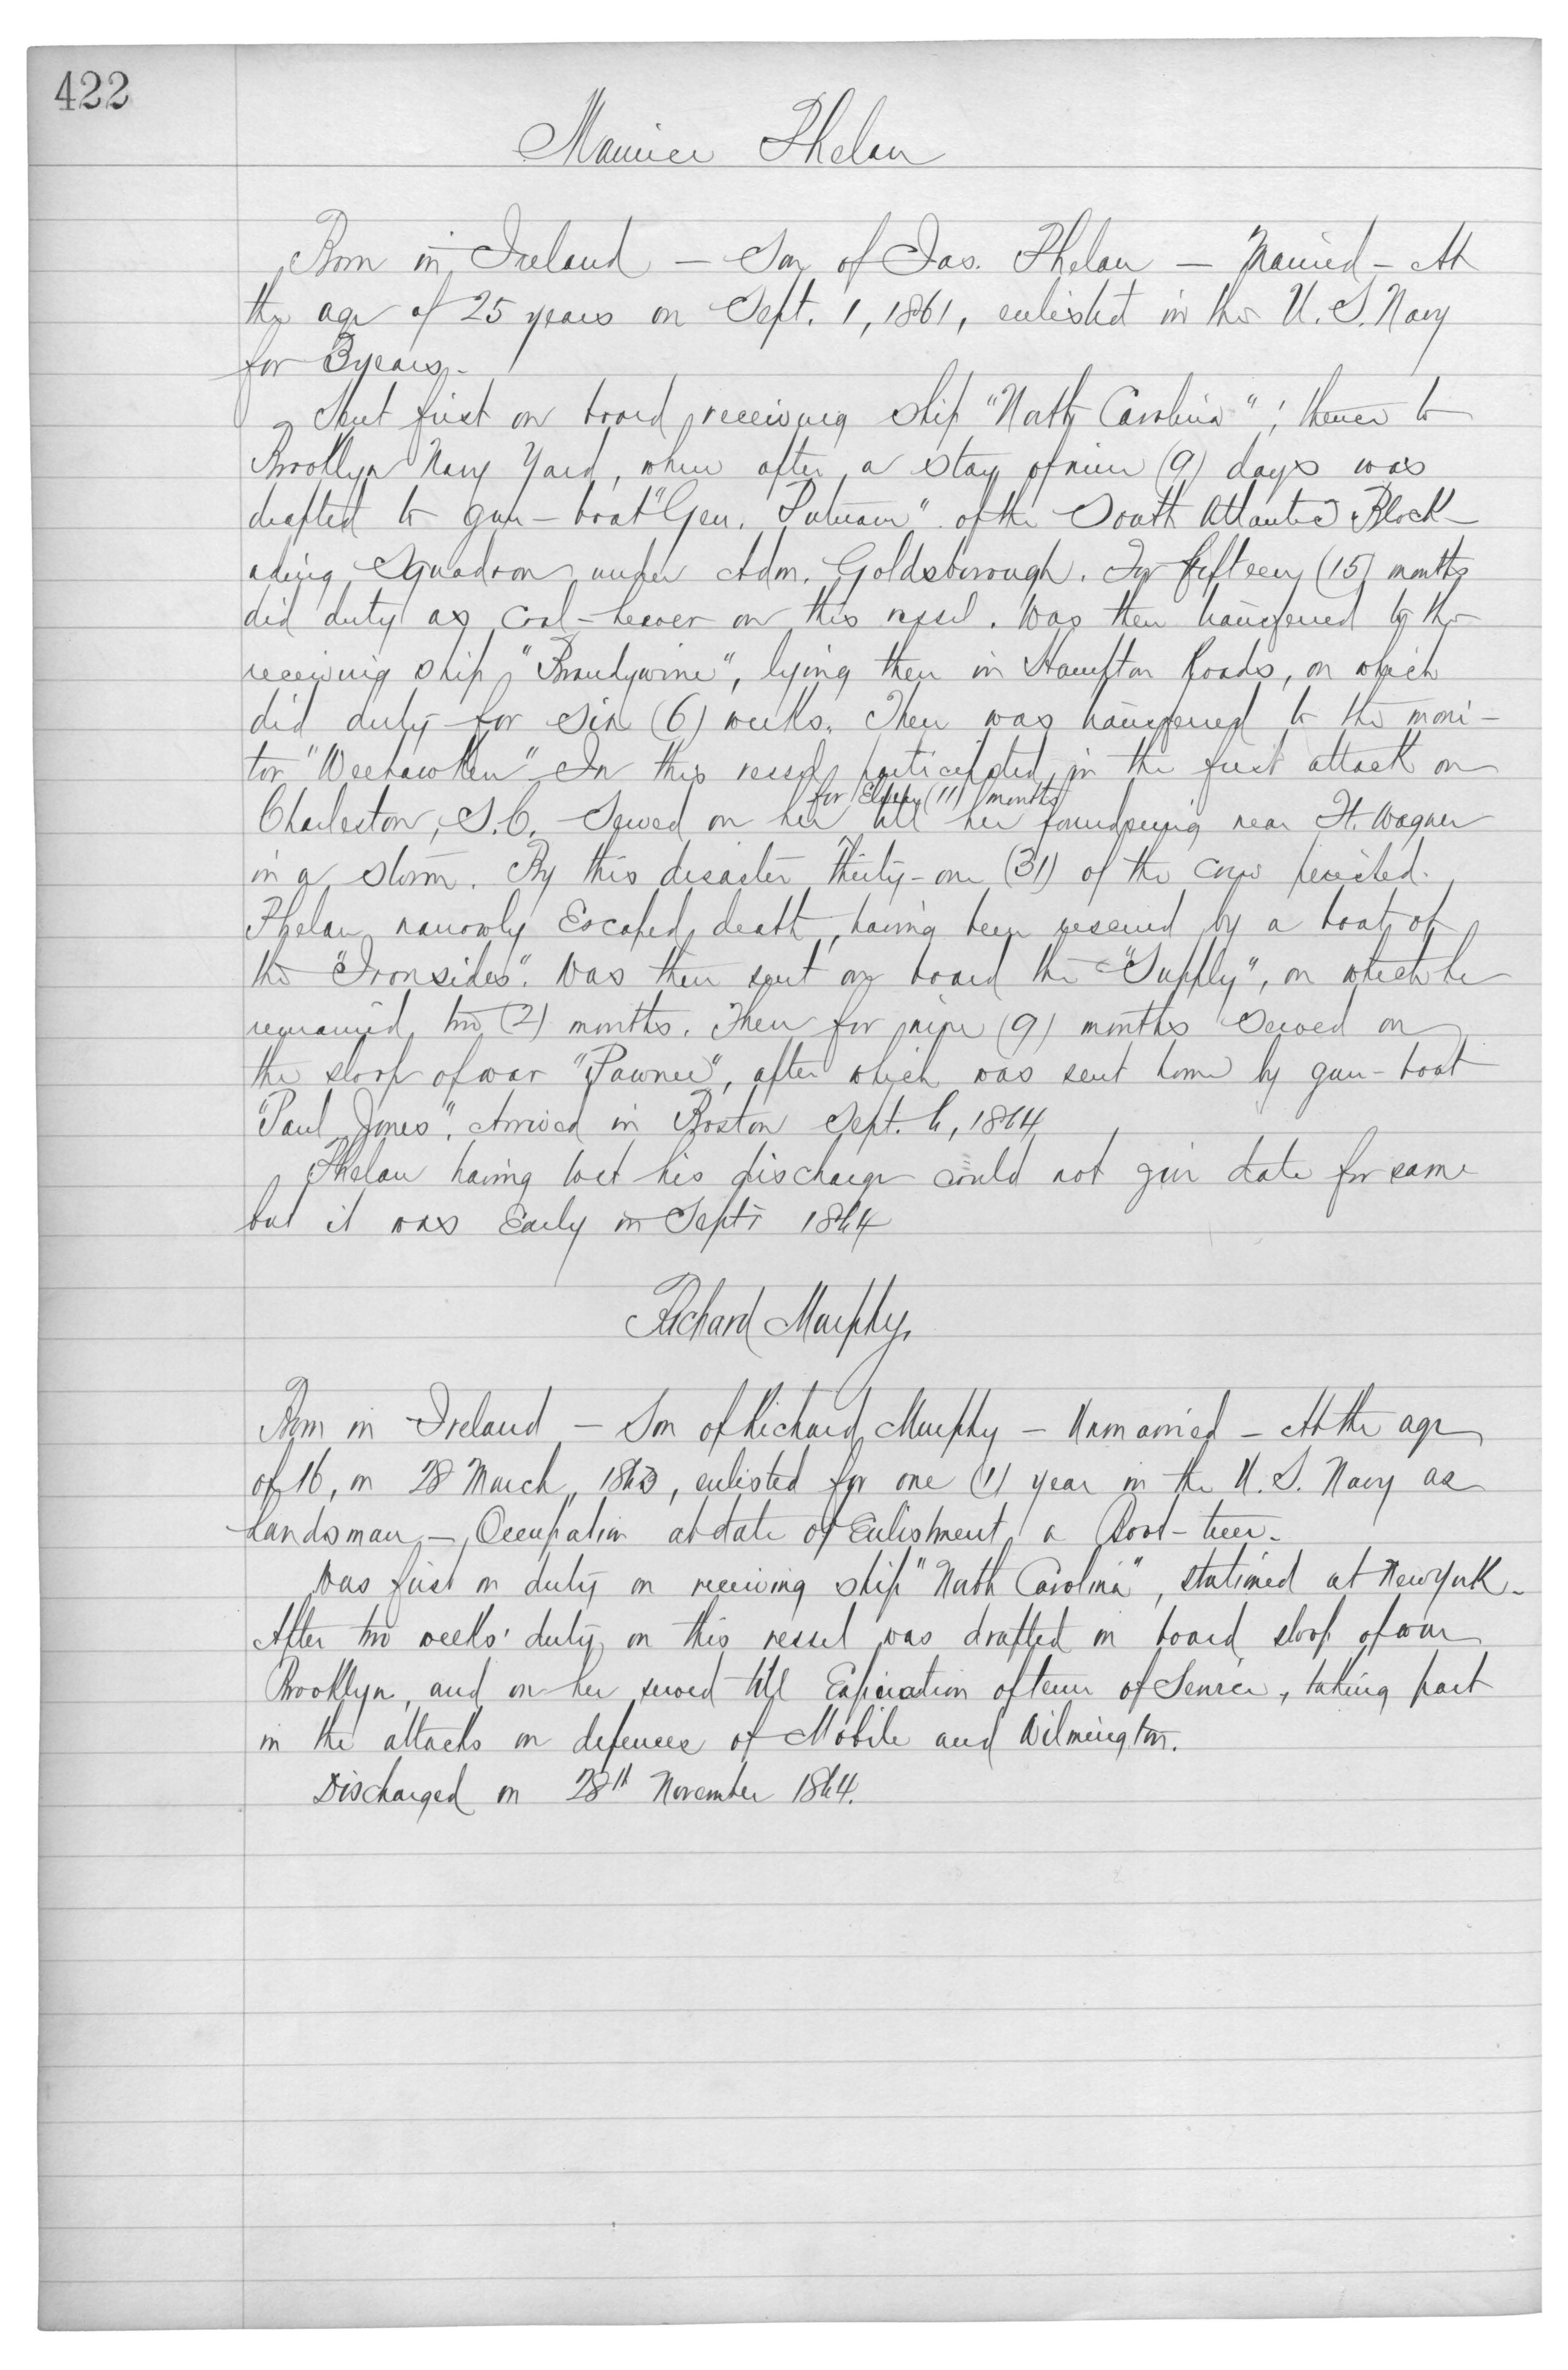 422
Maurice Phelan
Born in Ireland — Son of Jas. Phelan — Married — At
the age of 25 years on Sept. 1, 1861, enlisted in the U. S. Navy
for 3 years.
Sent first on board receiving ship "North Carolina"; thence to
Brooklyn Navy Yard, where after a stay of nine (9) days was
drafted to gun-boat "Gen. Putnam" of the South Atlantic Block-
ading Squadron under Adm. Goldsborough. For fifteen (15) months
did duty as coal-heaver on this vessel. Was then transferred to the
receiving ship "Brandywine", lying then in Hampton Roads, on which
did duty for six (6) weeks. Then was transferred to the moni-
tor "Weehawken". In this vessel participated in the first attack on
for Eleven (11) months
Charleston, S.C. Served on her till her foundering near Ft. Wagner
in a storm. By this disaster thirty-one (31) of the crew perished.
Phelan narrowly Escaped death, having been rescued by a boat of
the "Ironsides". Was then sent on board the "Supply", on which he
remained two (2) months. Then for nine (9) months served on
the sloop of war "Pawnee", after which was sent home by gun-boat
"Paul Jones". Arrived in Boston Sept. 6, 1864
Phelan having lost his discharge could not give date for same
but it was Early in Sept. 1864
Richard Murphy.
Born in Ireland — Son of Richard Murphy — Unmarried — At the age
of 16, on 28 March, 1863, enlisted for one (1) year in the U. S. Navy as
Landsman — Occupation at date of Enlistment, a Boot-treer.
Was first on duty on receiving ship "North Carolina", stationed at New York.
After two weeks' duty on this vessel was drafted on board sloop of war
Brooklyn, and on her served till Expiration of term of Service, taking part
in the attacks on defences of Mobile and Wilmington.
Discharged on 28th November 1864.